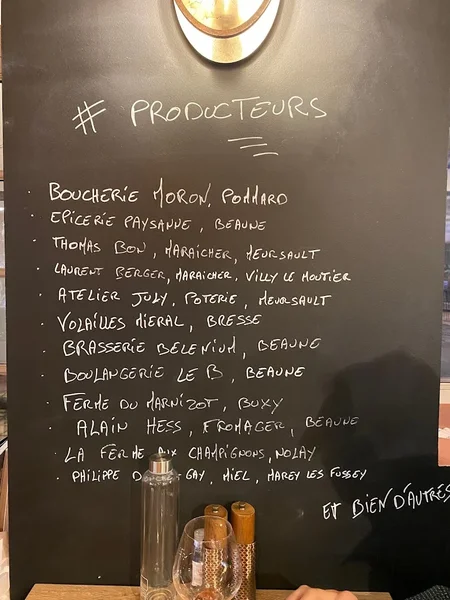 # PRODUCTEURS
BOUCHERIE MORON, POMMARD
EPICERIE PAYSANNE, BEAUNE
THOMAS BON, MARAICHER, MEURSAULT
LAURENT BERGER, MARAICHER, VILLY LE MOUTIER
ATELIER JULY, POTERIE, MEURSAULT
VOLAILLES MIERAL, BRESSE
BRASSERIE BELENIUM, BEAUNE
BOULANGERIE LE B, BEAUNE
FERME DU MARNIZOT, BUXY
ALAIN HESS, FROMAGER, BEAUNE
LA FERME AUX CHAMPIGNONS, NOLAY
PHILIPPE GAY, MIEL, MAREY LES FUSSEY
ET BIEN D'AUTRES